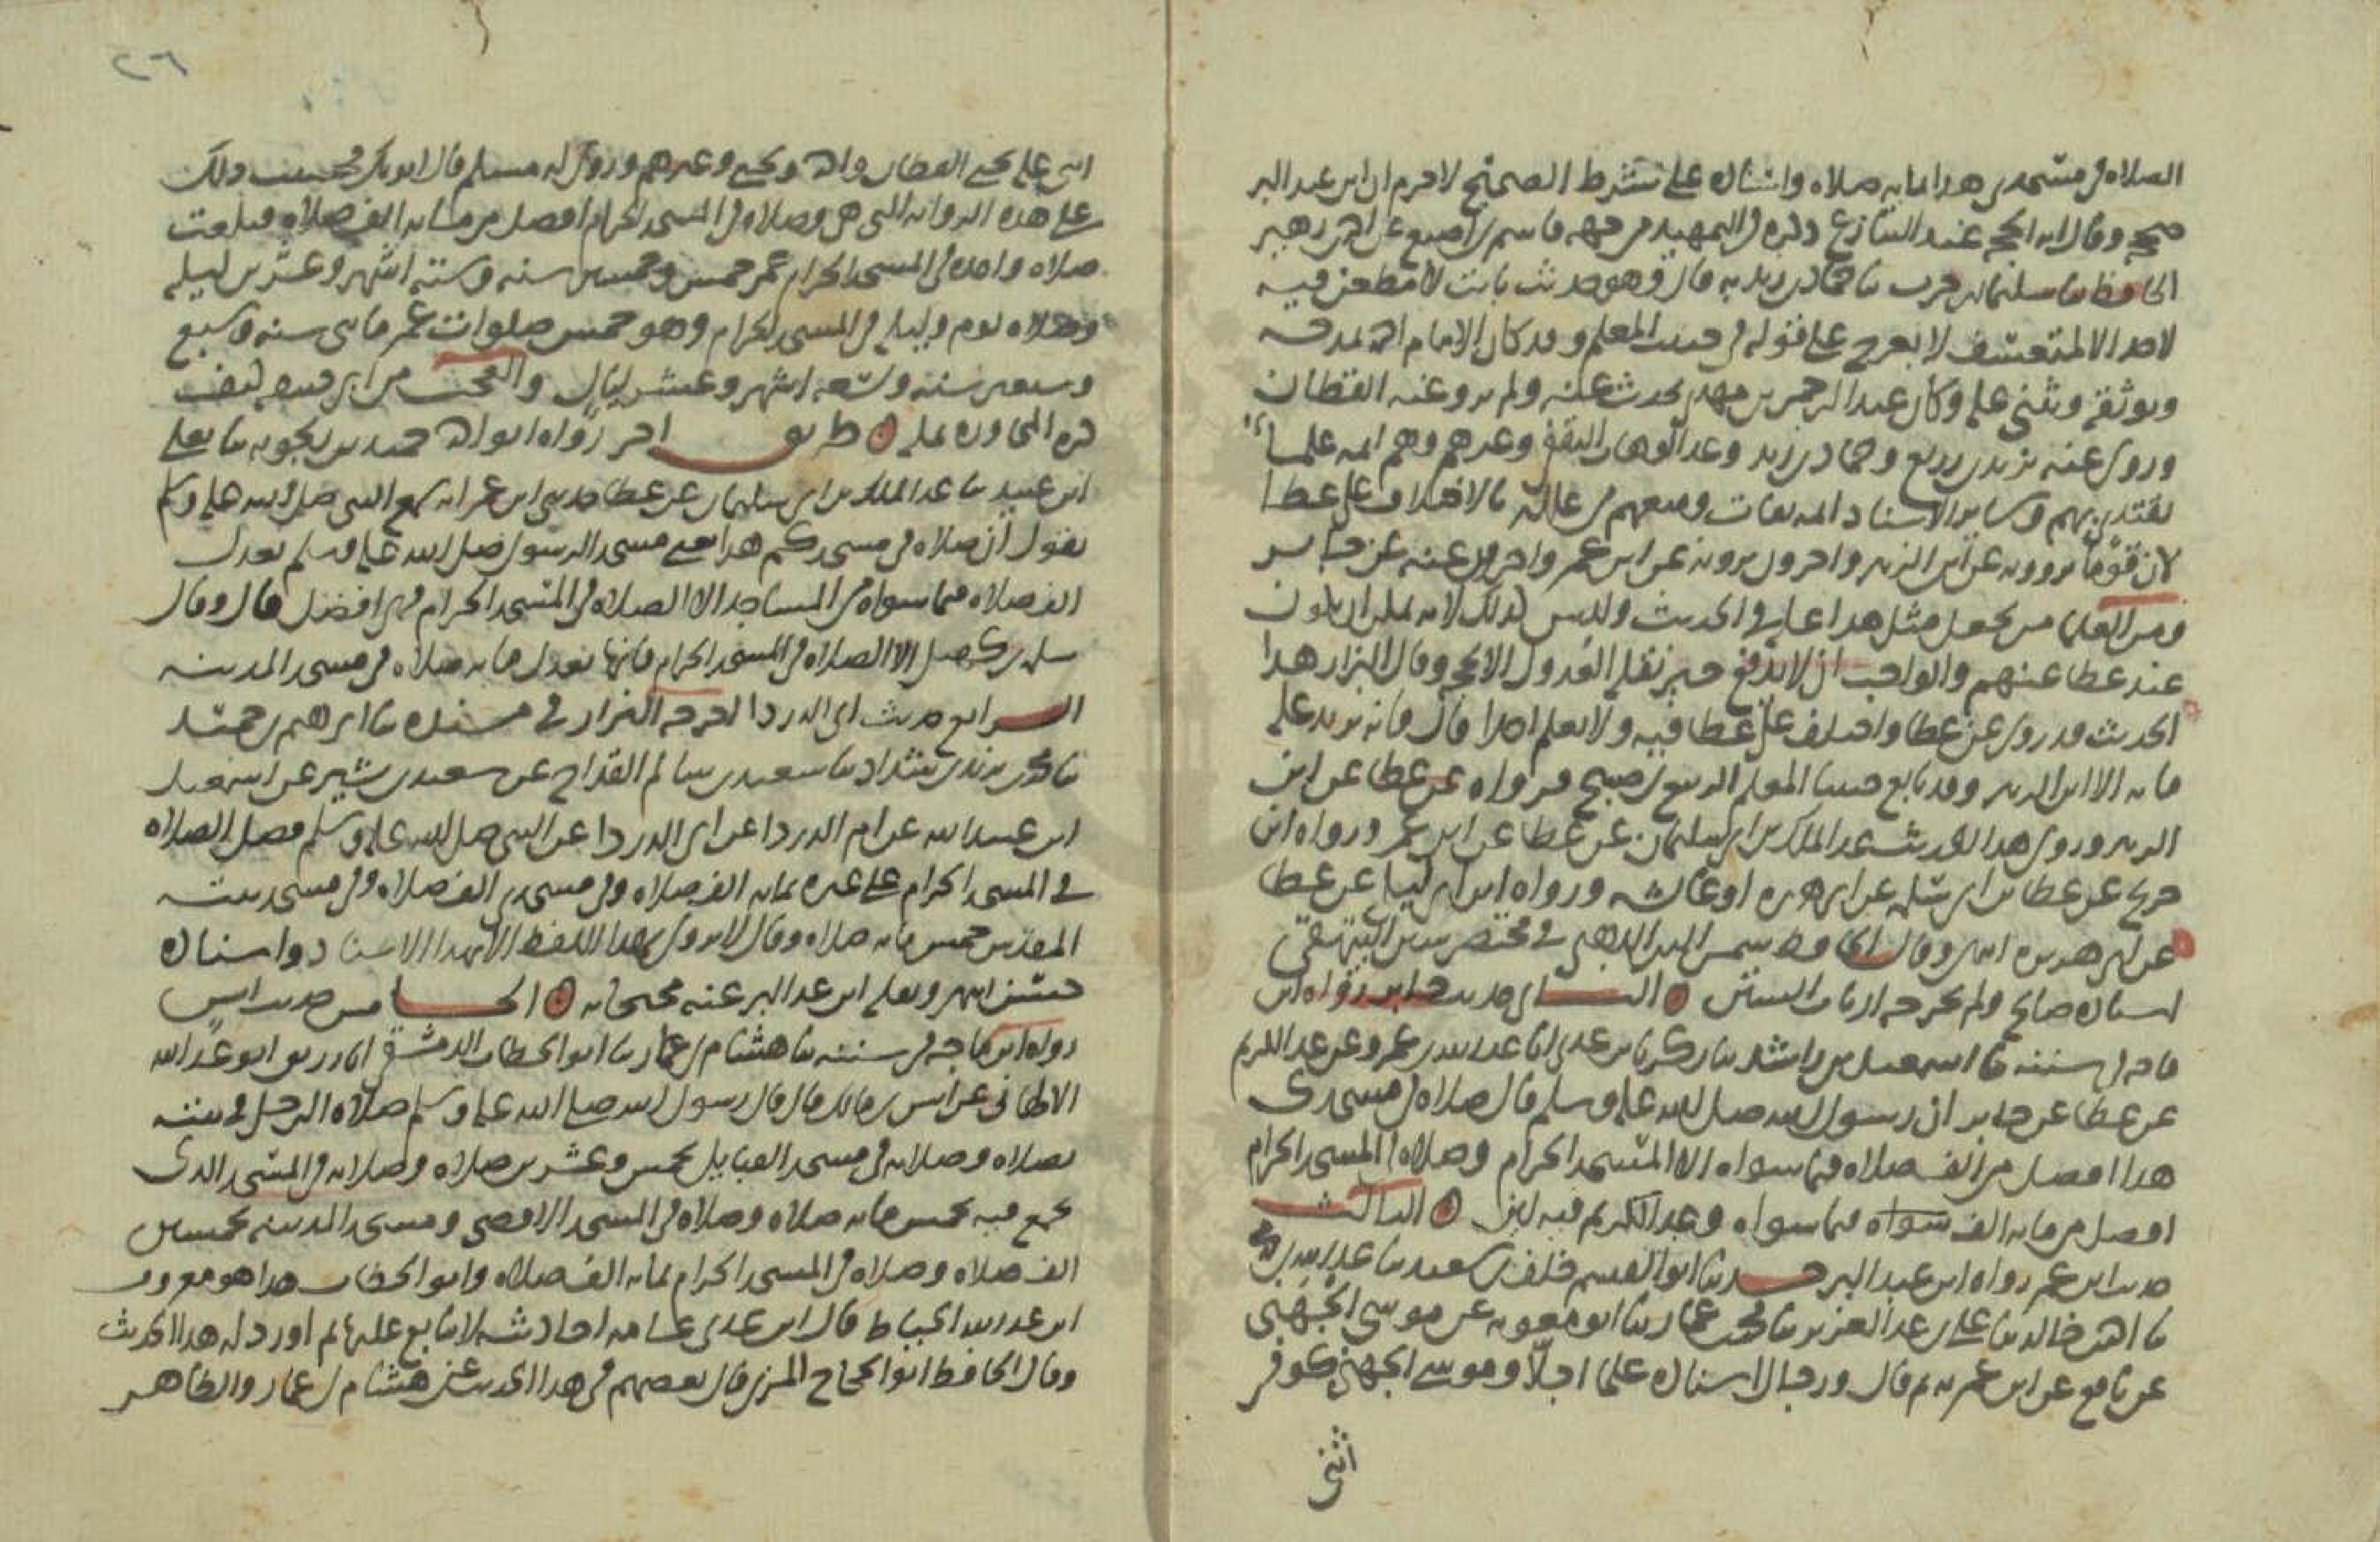 الصلاة في مسجدي هذا بمايه صلاه واسناده على شرط الصحيح لا جرم ان ابن عبد البر
صححه وقال انه الحجه عند التنازع ذكره في التمهيد من جهه قاسم بن اصبغ عن احمد بن زهير
الحافظ ثنا سليمان بن حرب ثنا حماد بن زيد به قال وهو حديث ثابت لا مطعن فيه
لاحد الا لمتعسف لا يعرج على قوله في حبيب المعلم وقد كان الامام احمد يمدحه
ويوثقه ويثني عليه وكان عبد الرحمن بن مهدي يحدث عنه ولم يرو عنه القطان
وروى عنه يزيد بن زريع وحماد بن زيد وعبد الوهاب الثقفي وغيرهم وهم ايمه علما
يقتدى بهم وساير الاسناد ايمه ثقات ومنهم من علله بالاختلاف على عطا
لان قوما يروونه عن ابن الزبير واخرون يروونه عن ابن عمر واخرون عنه عن جابر
ومن العلما من يجعل مثل هذا عله في الحديث وليس كذلك لانه يمكن ان يكون
عند عطا عنهم والواجب ان لا يدفع خبر نقله العدول الا بحجه وقال البزار هذا
الحديث قد روي عن عطا واختلف على عطا فيه ولا نعلم احدا قال فانه يزيد عليه
مايه الا ابن الزبير وقد تابع حبيبا المعلم الربيع بن صبيح فرواه عن عطا عن ابن
الزبير وروى هذا الحديث عبد الملك بن ابي سليمان عن عطا عن ابن عمر ورواه ابن
جريج عن عطا عن ابي سلمه عن ابي هريره او عايشه ورواه ابن ابي ليلى عن عطا
عن ابي هريره انتهى وقال الحافظ شمس الدين الذهبي في مختصر سنن البيهقي
اسناده صالح ولم يخرجه ارباب السنن ۞ الثاني حديث جابر رواه ابن
ماجه في سننه ثنا اسمعيل بن راشد ثنا زكريا بن عدي انا عبيد الله بن عمرو عن عبد الكريم
عن عطا عن جابر ان رسول الله صلى الله عليه وسلم قال صلاه في مسجدي
هذا افضل من الف صلاه فيما سواه الا المسجد الحرام وصلاه في المسجد الحرام
افضل من مايه الف سواه فيما سواه وعبد الكريم فيه لين ۞ الثالث
حديث ابن عمر رواه ابن عبد البر حدثنا ابو القسم خلف بن سعيد ثنا عبد الله بن محمد
ثنا احمد بن خالد ثنا علي بن عبد العزيز ثنا محمد بن عمار ثنا ابو معويه عن موسى الجهني
عن نافع عن ابن عمر به ثم قال ورجال اسناده علما اجلا وموسى الجهني كوفي
اثنى
٢٦
اثنى عليه يحيى القطان واحمد ويحيى وغيرهم وروى له مسلم قال ابو بكر فحسبت ذلك
على هذه الروايه التي هي وصلاه في المسجد الحرام افضل من مايه الف صلاه فبلغت
صلاه واحده في المسجد الحرام عمر خمس وخمسين سنه وسته اشهر وعشرين ليله
وصلاه يوم وليله في المسجد الحرام وهو خمس صلوات عمر مايتي سنه وسبع
وسبعين سنه وتسعه اشهر وعشر ليال والعجب من ابن حبيب كيف
كره المجاوره بمكه ۞ طريق اخر رواه ابو احمد حميد بن زنجويه ثنا يعلى
ابن عبيد ثنا عبد الملك بن ابي سليمان عن عطا حدثني ابن عمر انه سمع النبي صلى الله عليه وسلم
يقول ان صلاه في مسجدكم هذا يعني مسجد الرسول صلى الله عليه وسلم تعدل
الف صلاه فيما سواه من المساجد الا الصلاه في المسجد الحرام فهي افضل قال وقال
سلمه بن كهيل الا الصلاه في المسجد الحرام فانها تعدل مايه صلاه في مسجد المدينه
الرابع حديث ابي الدردا اخرجه البزار في مسنده ثنا ابراهيم بن حميد
ثنا محمد بن يزيد بن شداد ثنا سعيد بن سالم القداح عن سعيد بن بشير عن اسمعيل
ابن عبيد الله عن ام الدردا عن ابي الدردا عن النبي صلى الله عليه وسلم فضل الصلاه
في المسجد الحرام على غيره بمايه الف صلاه وفي مسجدي الف صلاه وفي مسجد بيت
المقدس خمس مايه صلاه وقال لا يروى بهذا اللفظ الا بهذا الاسناد واسناده
حسن انتهى ونقله ابن عبد البر عنه محتجا به ۞ الخامس حديث انس
رواه ابن ماجه في سننه ثنا هشام بن عمار ثنا ابو الخطاب الدمشقي انا رزيق ابو عبد الله
الالهاني عن انس بن مالك قال قال رسول الله صلى الله عليه وسلم صلاه الرجل في بيته
بصلاه وصلاته في مسجد القبايل بخمس وعشرين صلاه وصلاته في المسجد الذي
يجمع فيه بخمس مايه صلاه وصلاه في المسجد الاقصى ومسجد المدينه بخمسين
الف صلاه وصلاه في المسجد الحرام بمايه الف صلاه وابو الخطاب هذا هو معروف
ابن عبد الله الخياط قال ابن عدي عامه احاديثه لا يتابع عليها ثم اورد له هذا الحديث
وقال الحافظ ابو الحجاج المزي قال بعضهم في هذا الحديث عن هشام بن عمار والظاهر